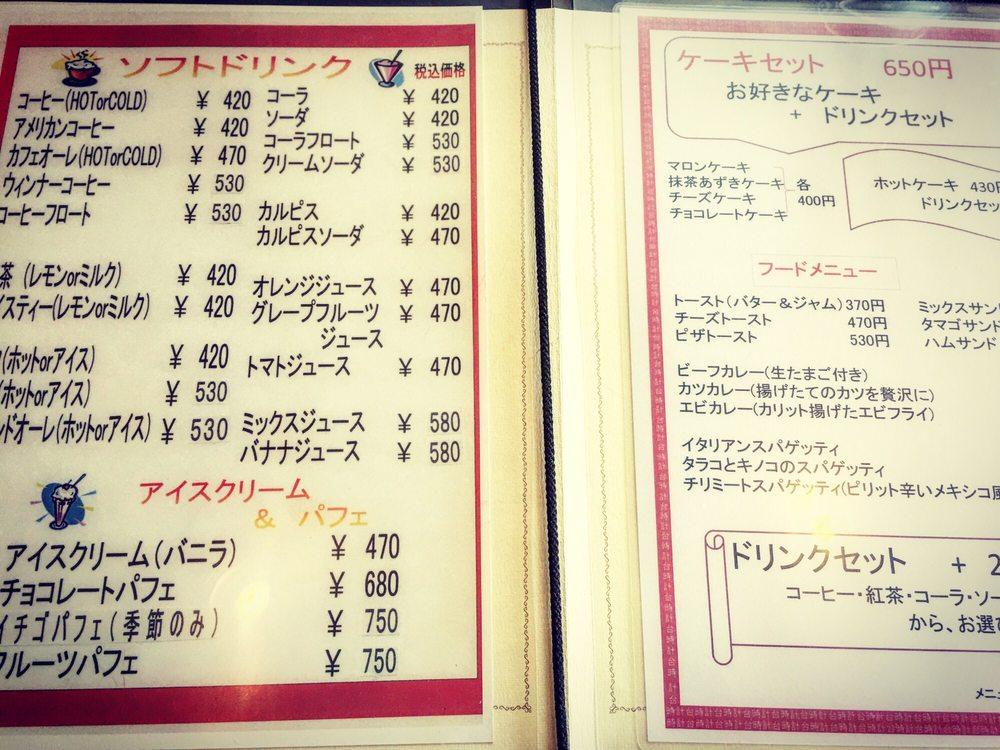 ソフトドリンク
税込価格
コーヒー(HOTorCOLD) ¥ 420
アメリカンコーヒー ¥ 420
カフェオーレ(HOTorCOLD) ¥ 470
ウィンナーコーヒー ¥ 530
コーヒーフロート ¥ 530
茶 (レモンorミルク) ¥ 420
イスティー(レモンorミルク) ¥ 420
(ホットorアイス) ¥ 420
(ホットorアイス) ¥ 530
ドオーレ(ホットorアイス) ¥ 530
コーラ ¥ 420
ソーダ ¥ 420
コーラフロート ¥ 530
クリームソーダ ¥ 530
カルピス ¥ 420
カルピスソーダ ¥ 470
オレンジジュース ¥ 470
グレープフルーツ ¥ 470
ジュース
トマトジュース ¥ 470
ミックスジュース ¥ 580
バナナジュース ¥ 580
アイスクリーム
& パフェ
アイスクリーム(バニラ) ¥ 470
チョコレートパフェ ¥ 680
イチゴパフェ(季節のみ) ¥ 750
フルーツパフェ ¥ 750
ケーキセット 650円
お好きなケーキ
+ ドリンクセット
マロンケーキ
抹茶あずきケーキ
チーズケーキ
チョコレートケーキ
各
400円
ホットケーキ 430円
ドリンクセッ
フードメニュー
トースト(バター&ジャム) 370円
チーズトースト 470円
ピザトースト 530円
ミックスサンド
タマゴサンド
ハムサンド
ビーフカレー(生たまご付き)
カツカレー(揚げたてのカツを贅沢に)
エビカレー(カリット揚げたエビフライ)
イタリアンスパゲッティ
タラコとキノコのスパゲッティ
チリミートスパゲッティ(ピリット辛いメキシコ風
ドリンクセット + 2
コーヒー・紅茶・コーラ・ソー
から、お選び
メニ